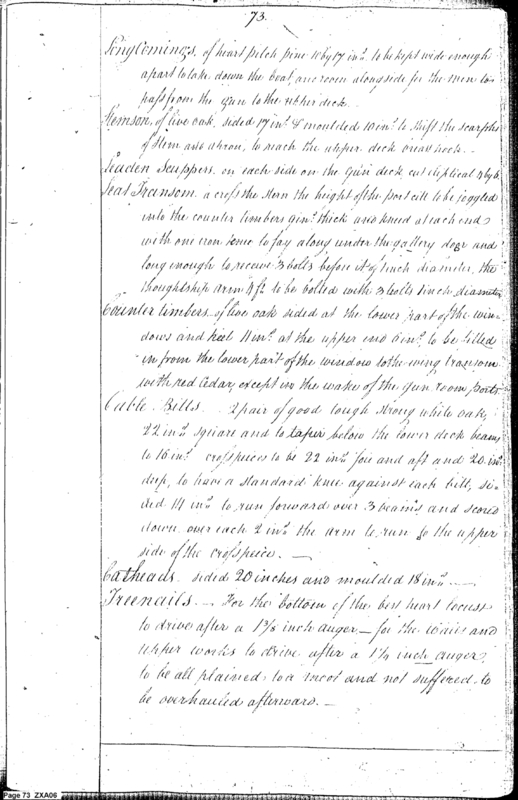 73.
Long Comings, of heart pitch pine 16 by 17 ins. to be kept wide enough
apart to take down the boat, and room alongside for the men to
pass from the gun to the upper deck.
Stemson, of live oak, sided 17 ins. & moulded 10 ins. to shift the scarphs
of Stem and apron, to reach the upper deck breast hook.
Leaden Scuppers, on each side on the gun deck cut eliptical
Seat Transom, a cross the stern the height of the port cill to be joggled
into the counter timbers 9 ins. thick and kneed at each end
with one iron knee to fay along under the gallery door and
long enough to receive 3 bolts before it of inch diameter, the
thoughtship arm 4 ft. to be bolted with 3 bolts 1 inch diameter
Counter timbers, of live oak sided at the lower part of the win-
dows and heel 11 ins. at the upper end 6 ins. to be filled
in from the lower part of the window to the wing transom
with red Cedar, except in the wake of the gun room ports
Cable Bitts. 2 pair of good tough strong white oak,
22 ins. square and to taper below the lower deck beams
to 16 ins. crosspieces to be 22 ins. fore and aft and 20 ins.
deep, to have a standard knee against each bitt, si-
ded 14 ins. to run forward over 3 beams, and scored
down over each 2 ins. the arm to run to the upper
side of the crosspeice. —
Catheads. sided 20 inches and moulded 18 ins. —
Treenails. — For the bottom of the best heart locust
to drive after a 1 3/8 inch auger, — for the wales and
upper works to drive after a 1 1/4 inch auger,
to be all plained to a moot and not suffered to
be overhauled afterward. —
Page 73 ZXA06